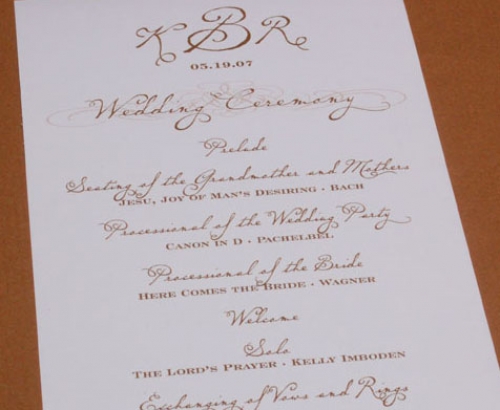 K B R
05.19.07
Wedding Ceremony
Prelude
Seating of the Grandmother and Mothers
Jesu, Joy of Man's Desiring · Bach
Processional of the Wedding Party
Canon in D · Pachelbel
Processional of the Bride
Here Comes the Bride · Wagner
Welcome
Solo
The Lord's Prayer · Kelly Imboden
Exchanging of Vows and Rings